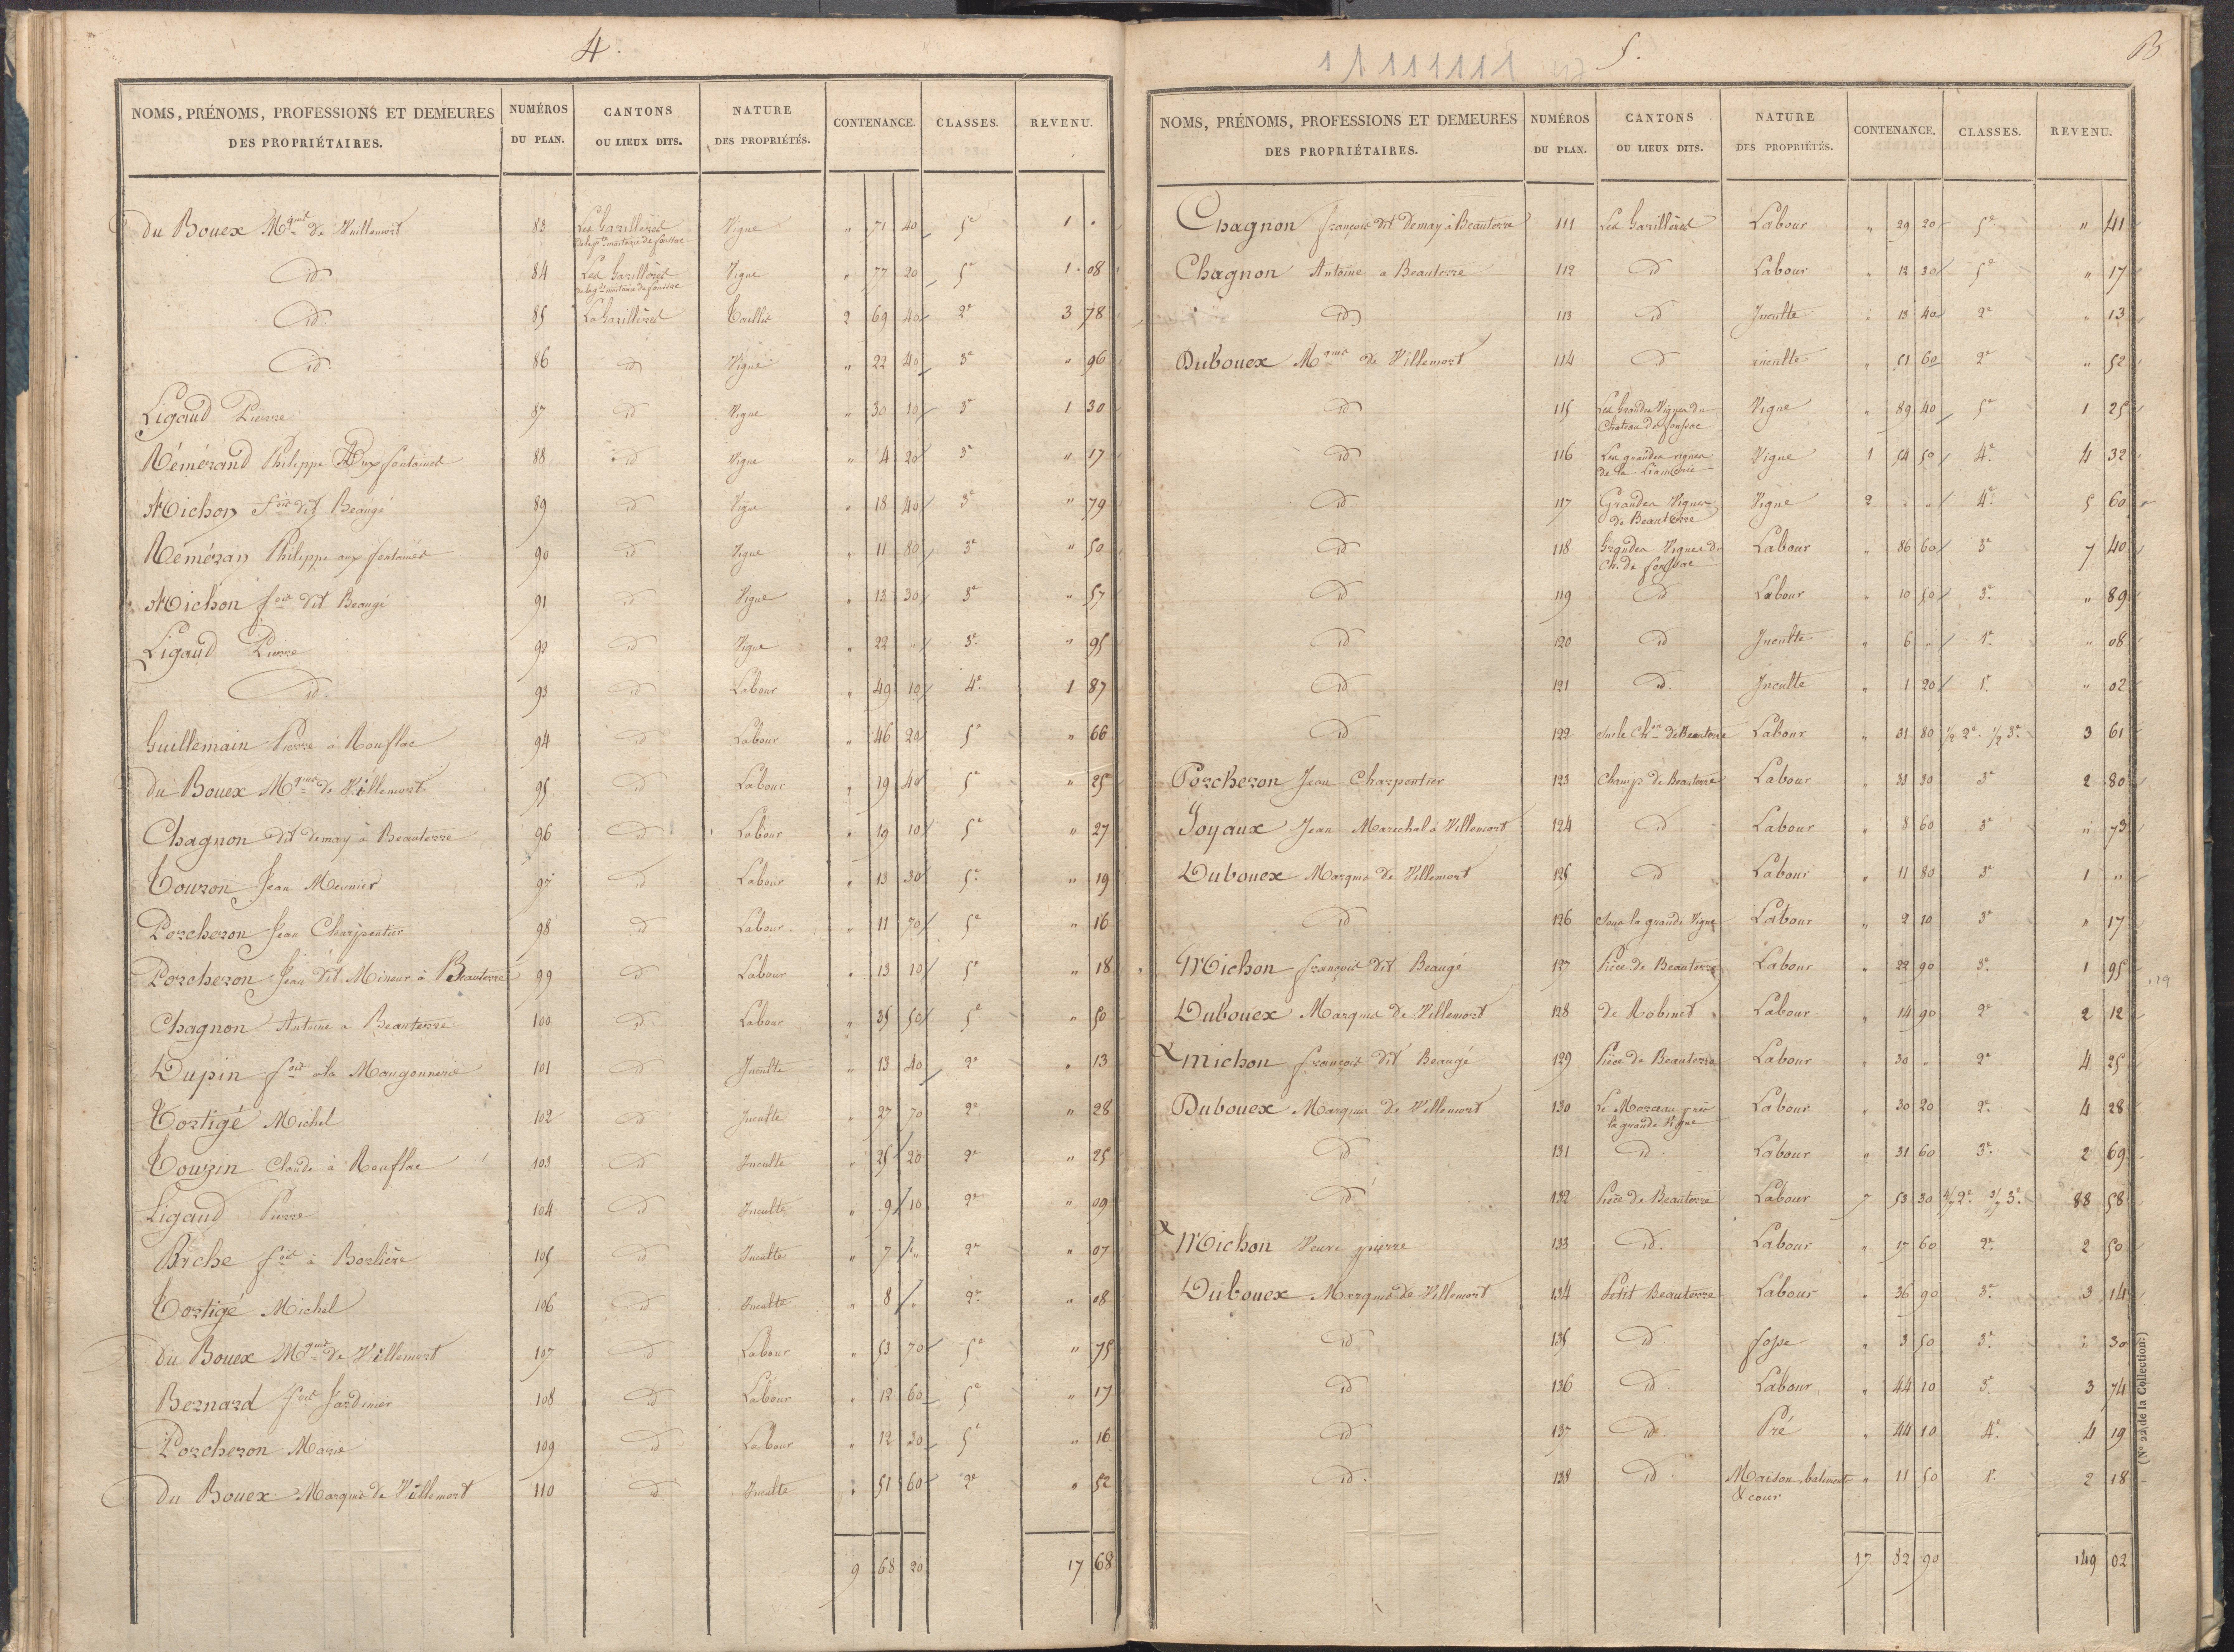 4.
NOMS, PRÉNOMS, PROFESSIONS ET DEMEURES DES PROPRIÉTAIRES. NUMÉROS DU PLAN. CANTONS OU LIEUX DITS. NATURE DES PROPRIÉTÉS. CONTENANCE. CLASSES. REVENU.
du Bouex Mquis de Villemort 83 Les Garillères Vigne " 71 40 5e 1 "
id. 84 Les Garillères Vigne " 77 20 5e 1 08
id. 85 La Garillères Taillis 2 69 40 2e 3 78
id. 86 id Vigne " 22 40 3e " 96
Ligaud Pierre 87 id Vigne " 30 10 3e 1 30
Rémérand Philippe Aux fontaines 88 id Vigne " 4 20 3e " 17
Michon fois dit Beaugé 89 id Vigne " 18 40 3e " 79
Réméran Philippe aux fontaines 90 id Vigne " 11 80 3e " 50
Michon fois dit Beaugé 91 id Vigne " 13 30 3e " 57
Ligaud Pierre 92 id Vigne " 22 " 3e " 95
id. 93 id Labour " 49 10 4e 1 87
Guillemain Pierre à Rouflac 94 id Labour " 46 20 5e " 66
du Bouex Mquis de Villemort 95 id Labour " 19 40 5e " 25
Chagnon dit demay à Beauterre 96 id Labour " 19 10 5e " 27
Touron Jean Meunier 97 id Labour " 13 30 5e " 19
Porcheron Jean Charpentier 98 id Labour " 11 70 5e " 16
Porcheron Jean dit Mineur à Beauterre 99 id Labour " 13 10 5e " 18
Chagnon Antoine a Beauterre 100 id Labour " 35 50 5e " 50
Dupin fois à la Maugonnerie 101 id Inculte " 13 40 2e " 13
Tortigé Michel 102 id Inculte " 27 70 2e " 28
Touzin Claude à Rouflac 103 id Inculte " 25 20 2e " 25
Ligaud Pierre 104 id Inculte " 9 10 2e " 09
Arche fois à Borlière 105 id Inculte " 7 " 2e " 07
Tortigé Michel 106 id Inculte " 8 " 2e " 08
du Bouex Mquis de Villemort 107 id Labour " 53 70 5e " 75
Bernard fois Jardinier 108 id Labour " 12 60 5e " 17
Porcheron Marie 109 id Labour " 12 30 5e " 16
Du Bouex Marquis de Villemort 110 id Inculte " 51 60 2e " 52
9 68 20 17 68
5. B
NOMS, PRÉNOMS, PROFESSIONS ET DEMEURES DES PROPRIÉTAIRES. NUMÉROS DU PLAN. CANTONS OU LIEUX DITS. NATURE DES PROPRIÉTÉS. CONTENANCE. CLASSES. REVENU.
Chagnon françois dit Demay à Beauterre 111 Les Garillères Labour " 29 20 5e " 41
Chagnon Antoine a Beauterre 112 id Labour " 12 30 5e " 17
id 113 id Inculte " 13 40 2e " 13
Dubouex Mquis de Villemort 114 id inculte " 51 60 2e " 52
id 115 Les Grandes Vignes du Chateau de foussac Vigne " 89 40 5e 1 25
id 116 Les grandes vignes de la Vigne 1 54 50 4e 4 32
id 117 Grandes Vignes de Beauterre Vigne 2 " " 4e 5 60
id 118 Grandes Vignes du Ch. de foussac Labour " 86 60 3e 7 40
id 119 id Labour " 10 50 3e " 89
id 120 id Inculte " 6 " 1e " 08
id 121 id. Inculte " 1 20 1e " 02
id 122 Sur le Chin de Beauterre Labour " 31 80 1/2 2e 1/2 3e 3 61
Porcheron Jean Charpentier 123 Champs de Beauterre Labour " 33 30 3e 2 80
Joyaux Jean Marechal à Villemort 124 id Labour " 8 60 3e " 73
Dubouex Marquis de Villemort 125 id Labour " 11 80 3e 1 "
id 126 Sous la grande Vigne Labour " 2 10 3e " 17
Michon françois dit Beaugé 127 Pièce de Beauterre Labour " 22 90 3e 1 95
Dubouex Marquis de Villemort 128 de Robinet Labour " 14 90 2e 2 12
x michon françois dit Beaugé 129 Pièce de Beauterre Labour " 30 " 2e 4 25
Dubouex Marquis de Villemort 130 Le Morceau près la grande Vigne Labour " 30 20 2e 4 28
id 131 id Labour " 31 60 3e 2 69
id 132 Pièce de Beauterre Labour 7 53 30 4/7 2e 3/7 3e 88 58
x Michon Veuve pierre 133 id. Labour " 17 60 2e 2 50
Dubouex Marquis de Villemort 134 Petit Beauterre Labour " 36 90 3e 3 14
id 135 id fosse " 3 50 3e " 30
id 136 id. Labour " 44 10 3e 3 74
id 137 id Pré " 44 10 4e 4 19
id. 138 id Maison, batiment & cour " 11 50 1e 2 18
17 82 90 149 02
(N° 22 de la Collection.)